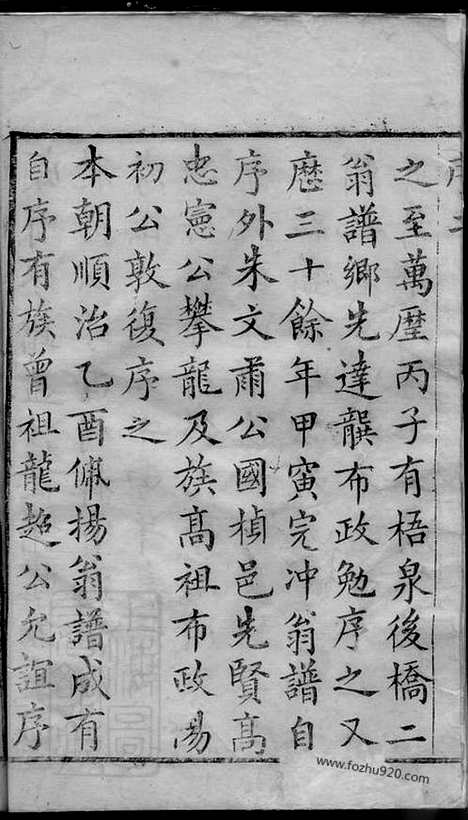 之至萬厯丙子有梧泉後橋二
翁譜鄉先達龔布政勉序之又
厯三十餘年甲寅完冲翁譜自
序外朱文肅公國楨邑先賢高
忠憲公攀龍及族高祖布政湯
初公敦復序之
本朝順治乙酉佩揚翁譜成有
自序有族曾祖龍超公允誼序
www.fozhu920.com